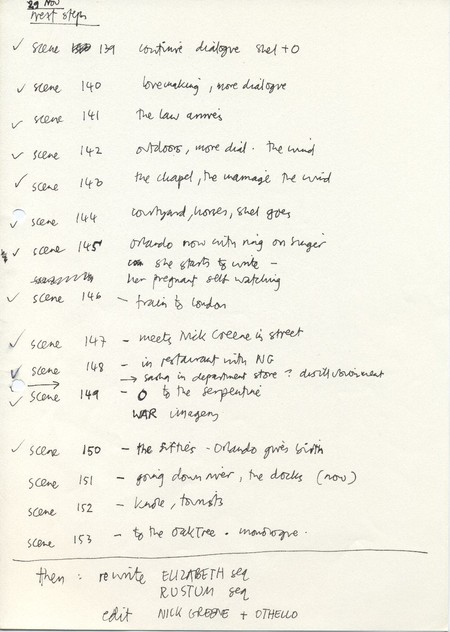 29 NOV
next steps
✓ scene 139 continue dialogue shel + O
✓ scene 140 lovemaking, more dialogue
✓ scene 141 the law arrives
✓ scene 142 outdoors, more dial. the wind
✓ scene 143 the chapel, the marriage the wind
✓ scene 144 courtyard, horses, shel goes
✓ scene 145 orlando now with ring on finger
she starts to write -
her pregnant self watching
✓ scene 146 - train to london
✓ scene 147 - meets Nick Greene in street
✓ scene 148 - in restaurant with NG
→ → in department store? disillusionment
✓ scene 149 - O to the serpentine
WAR imagery
✓ scene 150 - the fifties - Orlando gives birth
scene 151 - going down river, the docks (now)
scene 152 - knole, tourists
scene 153 - to the oak tree. monologue.
then: rewrite ELIZABETH seq
RUSTUM seq
edit NICK GREENE + OTHELLO